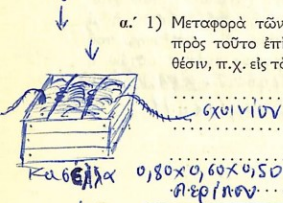 α.΄ 1) Μεταφορὰ τῶν
πρὸς τοῦτο ἐπι
θέσιν, π.χ. εἰς τὸ
σχοινίον
κασέλλα 0,80x0,60x0,50
περίπου